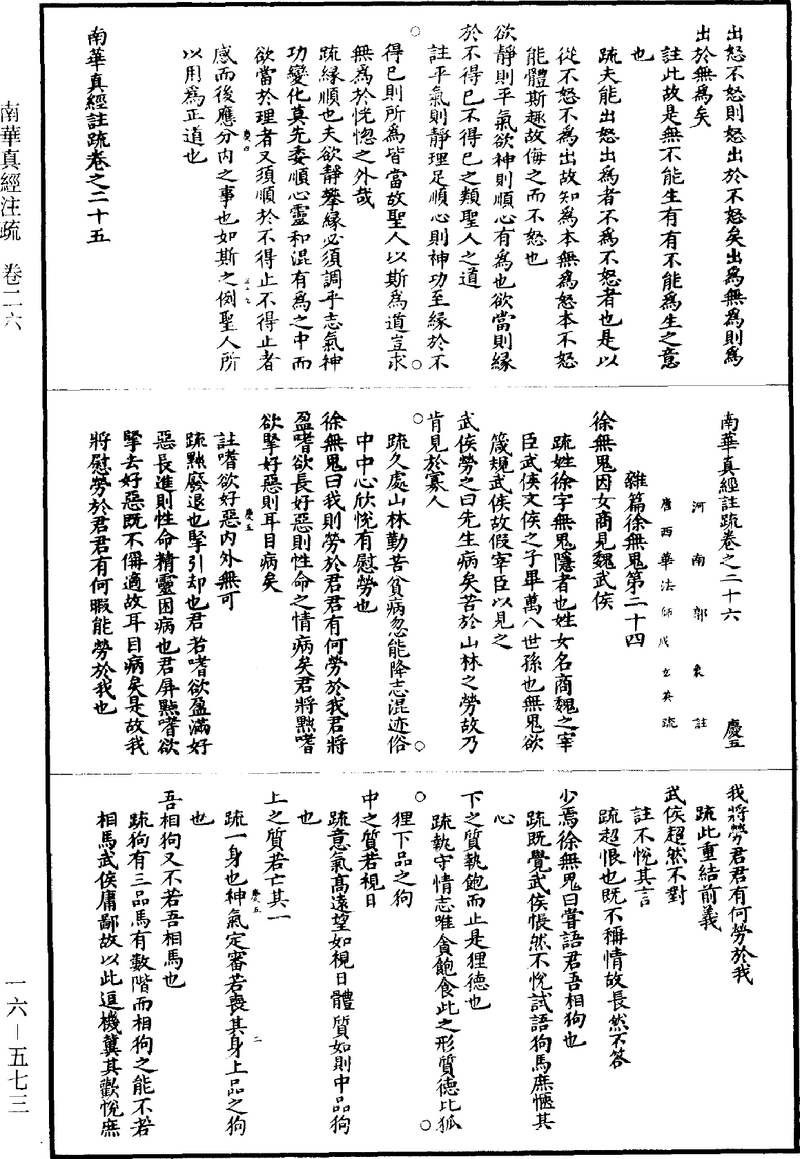 出怒不怒則怒出於不怒矣出為無為則為
出於無為矣
註此故是無不能生有有不能為生之意
也
疏夫能出怒出為者不為不怒者也是以
從不怒不為出故知為本無為怒本不怒
能體斯趣故侮之而不怒也
欲靜則平氣欲神則順心有為也欲當則緣
於不得已不得已之類聖人之道
註平氣則靜理足順心則神功至緣於不
得已則所為皆當故聖人以斯為道豈求
無為於恍惚之外哉
疏緣順也夫欲靜攀緣必須調乎志氣神
功變化莫先委順心靈和混有為之中而
欲當於理者又須順於不得止不得止者
感而後應分內之事也如斯之例聖人所
以用為正道也
南華真經註疏卷之二十五
南華真經註疏卷之二十六 慶五
河南郭象註
唐西華法師成玄英疏
雜篇徐無鬼第二十四
徐無鬼因女商見魏武侯
疏姓徐字無鬼隱者也姓女名商魏之宰
臣武侯文侯之子畢萬八世孫也無鬼欲
箴規武侯故假宰臣以見之
武侯勞之曰先生病矣苦於山林之勞故乃
肯見於寡人
疏久處山林勤苦貧病忽能降志混迹俗
中中心欣悅有慰勞也
徐無鬼曰我則勞於君君有何勞於我君將
盈嗜欲長好惡則性命之情病矣君將黜嗜
欲掔好惡則耳目病矣
註嗜欲好惡內外無可
疏黜廢退也掔引却也君若嗜欲盈滿好
惡長進則性命精靈困病也君屏黜嗜欲
掔去好惡既不稱適故耳目病矣是故我
將慰勞於君君有何暇能勞於我也
我將勞君君有何勞於我
疏此重結前義
武侯超然不對
註不悅其言
疏超悵也既不稱情故長然不答
少焉徐無鬼曰嘗語君吾相狗也
疏既覺武侯悵然不悅試語狗馬庶愜其
心
下之質執飽而止是狸德也
疏執守情志唯貪飽食此之形質德比狐
狸下品之狗
中之質若視日
疏意氣高遠望如視日體質如則中品狗
也
上之質若亡其一
疏一身也神氣定審若喪其身上品之狗
也
吾相狗又不若吾相馬也
疏狗有三品馬有數階而相狗之能不若
相馬武侯庸鄙故以此逗機冀其歡悅庶
南華真經注疏 卷二六
一六－五七三